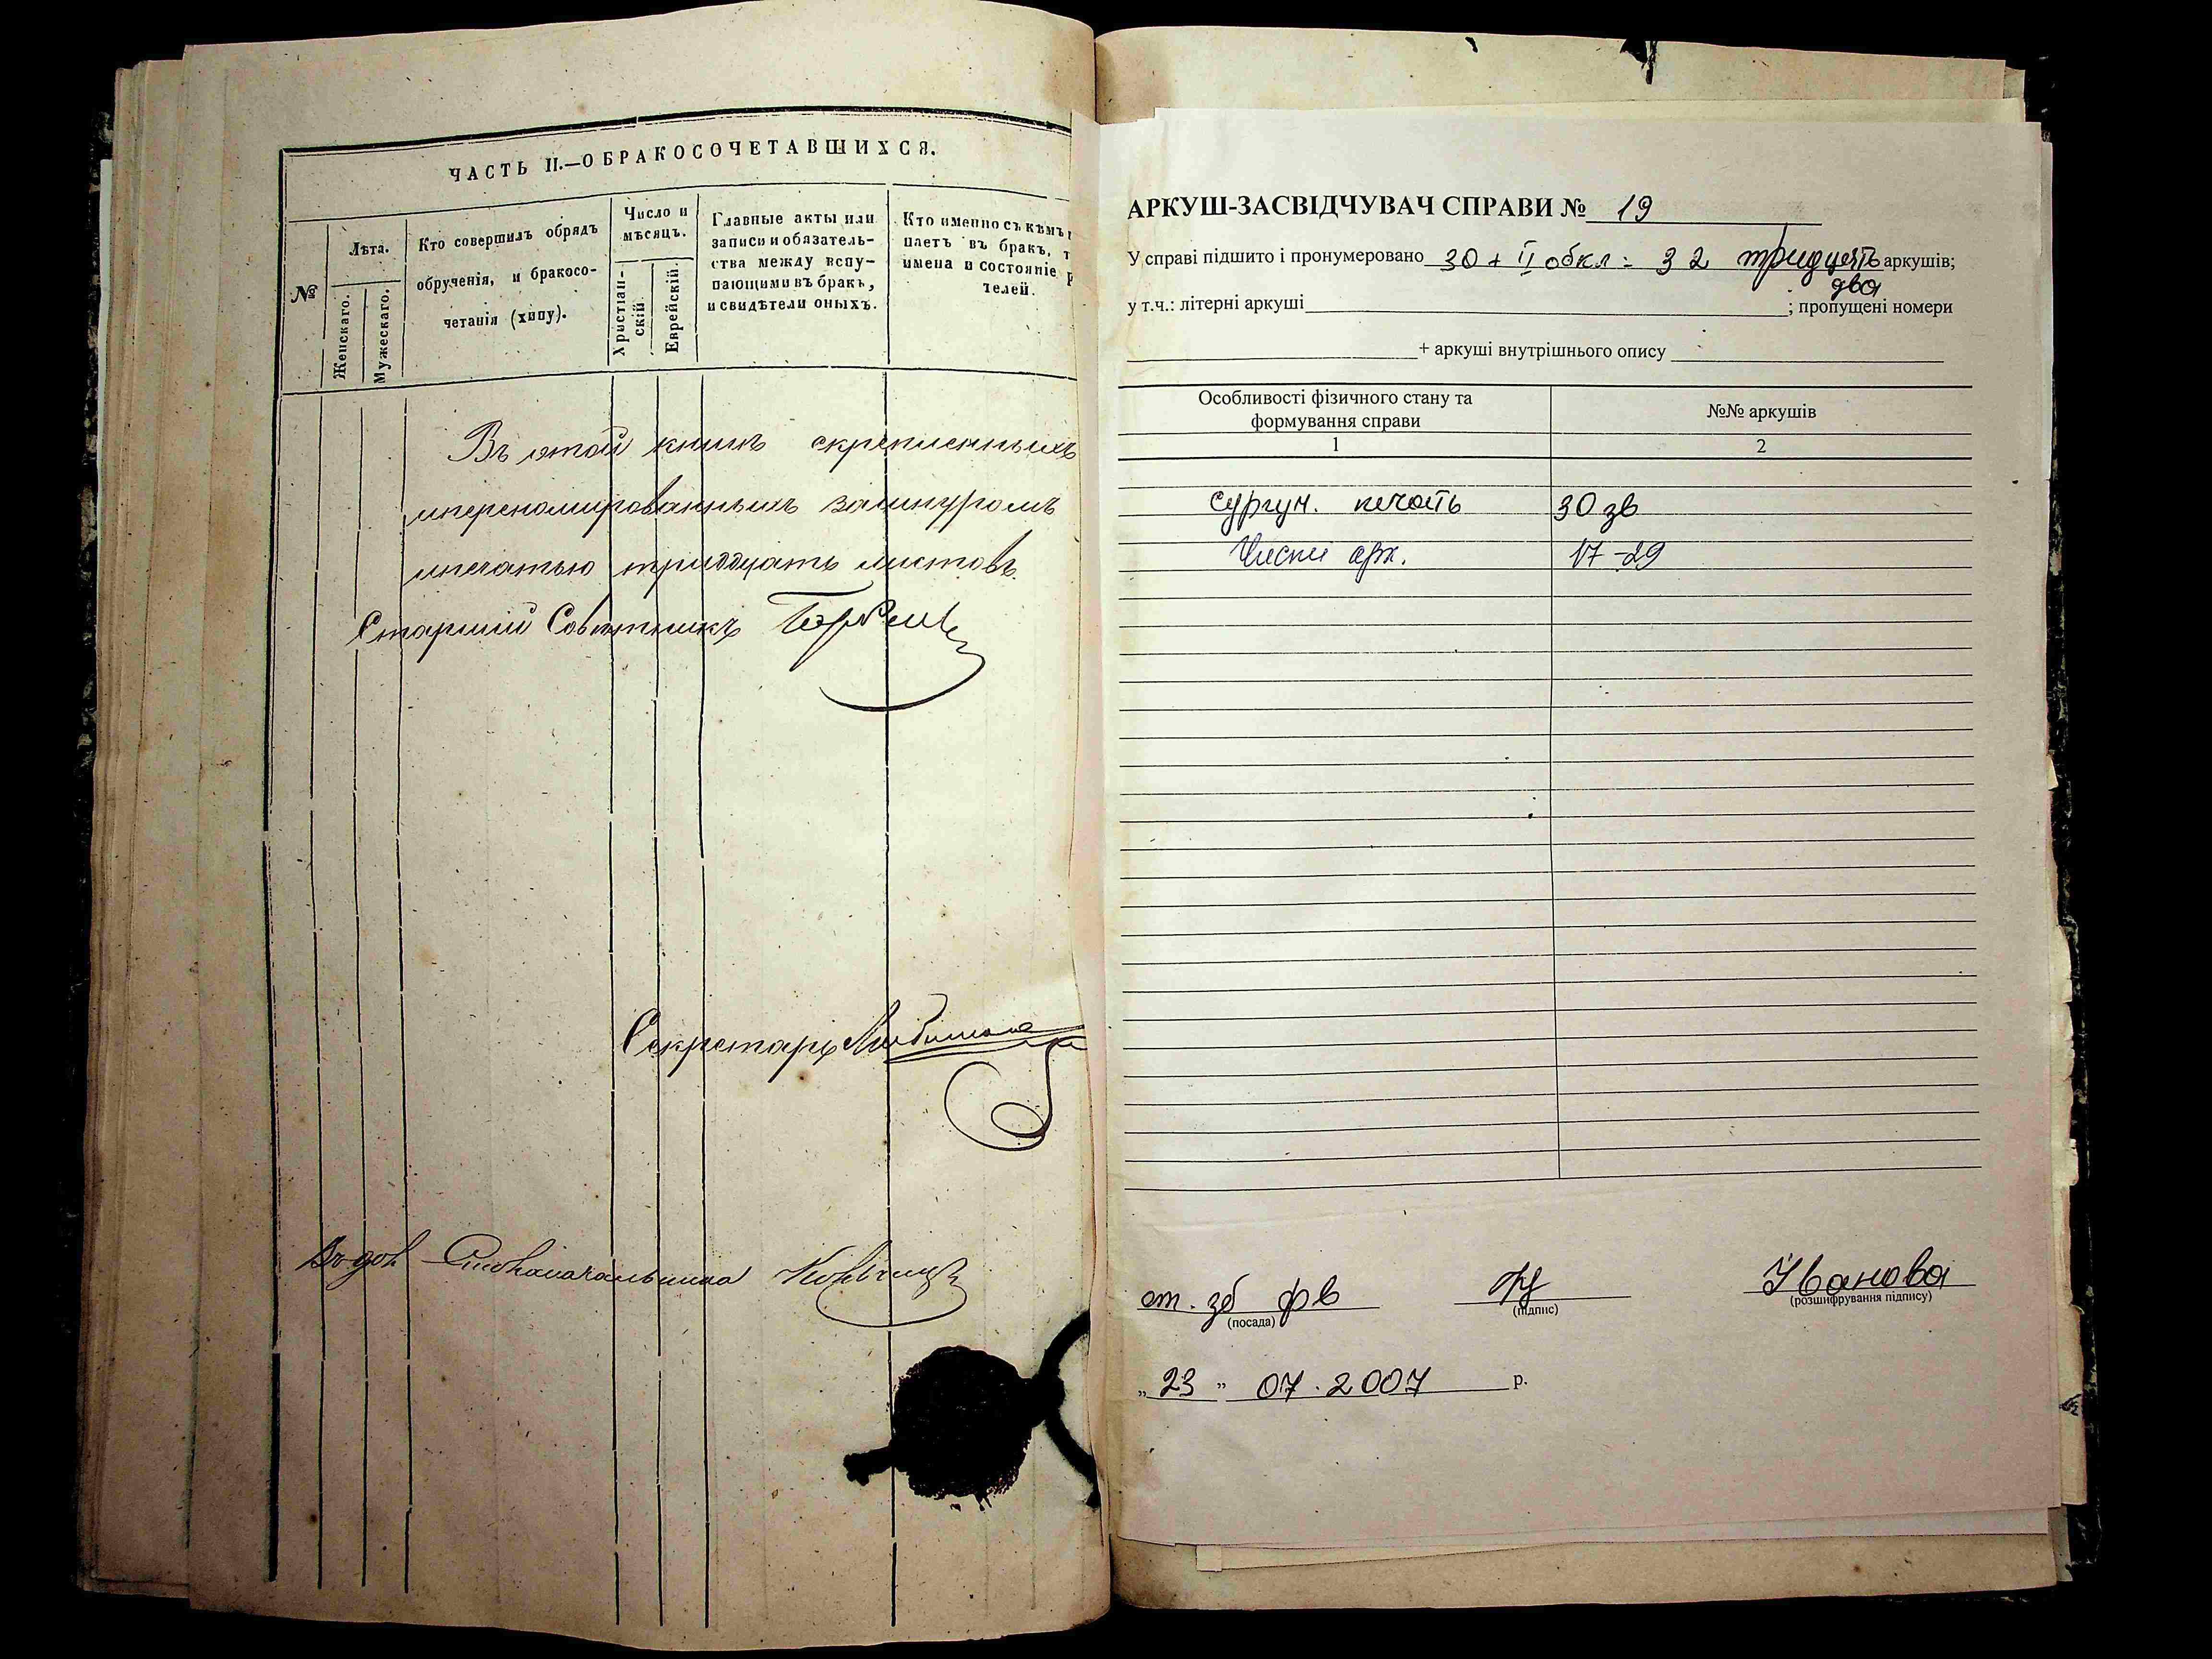 ЧАСТЬ II.—О БРАКОСОЧЕТАВШИХСЯ.
№
Лѣта.
Женскаго.
Мужескаго.
Кто совершилъ обрядъ
обрученія, и бракосо-
четанія (хипу).
Число и
мѣсяцъ.
Христіан-
скій.
Еврейскій.
Главные акты или
записи и обязатель-
ства между всту-
пающими въ бракъ,
и свидѣтели оныхъ.
Кто именно съ кѣмъ
паетъ въ бракъ,
имена и состояніе
телей.
Въ этой книгѣ скрепленныхъ
ипереномированныхъ зашнуромъ
ипечатью тридцать листовъ.
Старшій Совѣтникъ
Секретарь
Столоначальника
АРКУШ-ЗАСВІДЧУВАЧ СПРАВИ № 19
У справі підшито і пронумеровано 30 + II обкл = 32 тридцять два аркушів;
у т.ч.: літерні аркуші ; пропущені номери
+ аркуші внутрішнього опису
Особливості фізичного стану та
формування справи
№№ аркушів
1 2
сургуч. печать 30 зв
Чисті арк. 17-29
ст. зб ф в Іванова
(посада) (підпис) (розшифрування підпису)
„ 23 ” 07.2007 р.